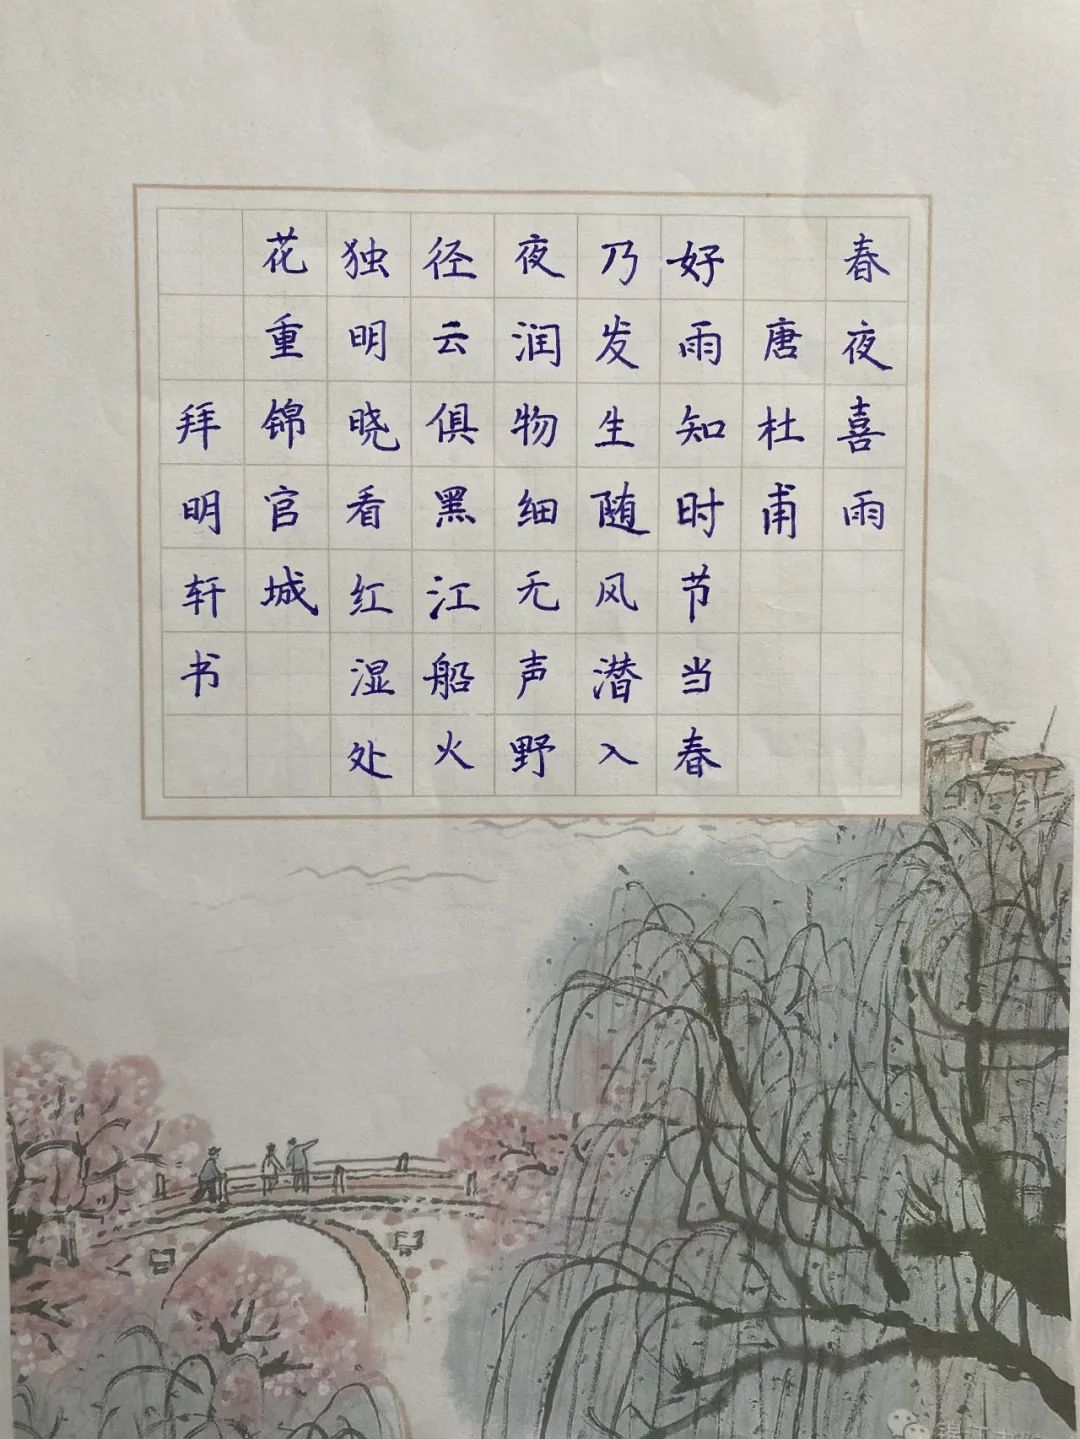 春夜喜雨
唐杜甫
好雨知时节当春
乃发生随风潜入
夜润物细无声野
径云俱黑江船火
独明晓看红湿处
花重锦官城
拜明轩书